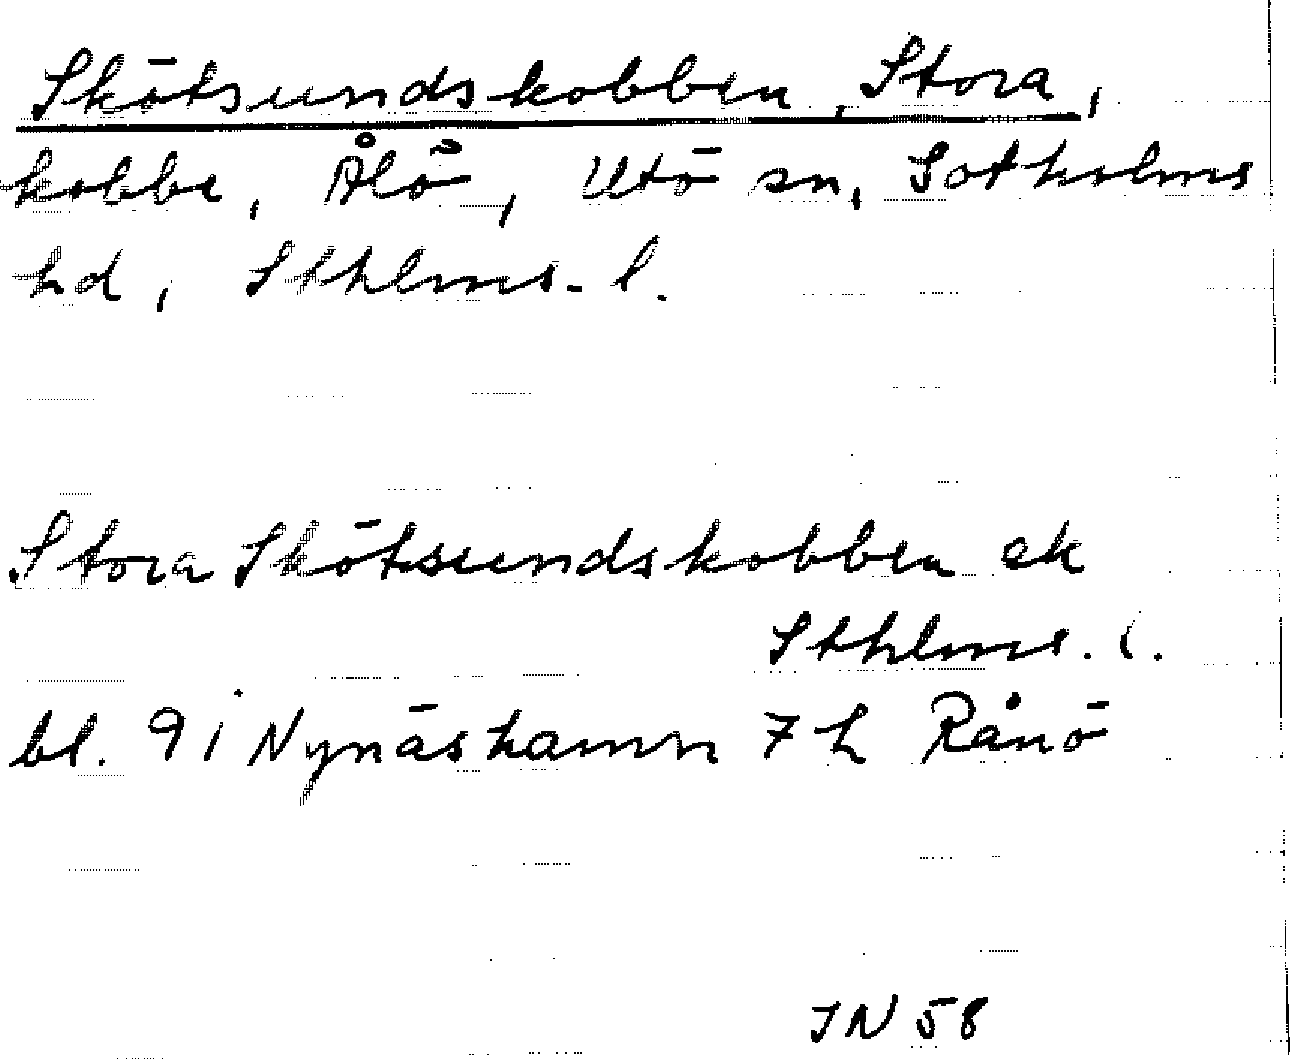 Skötsundskobben, Stora,
kobbe, Ålö, Utö sn, Sotholms
hd, Sthlms. l.
Stora Skötsundskobben ek
Sthlms. l.
bl. 91 Nynäshamn 7 h Rånö
JN 58